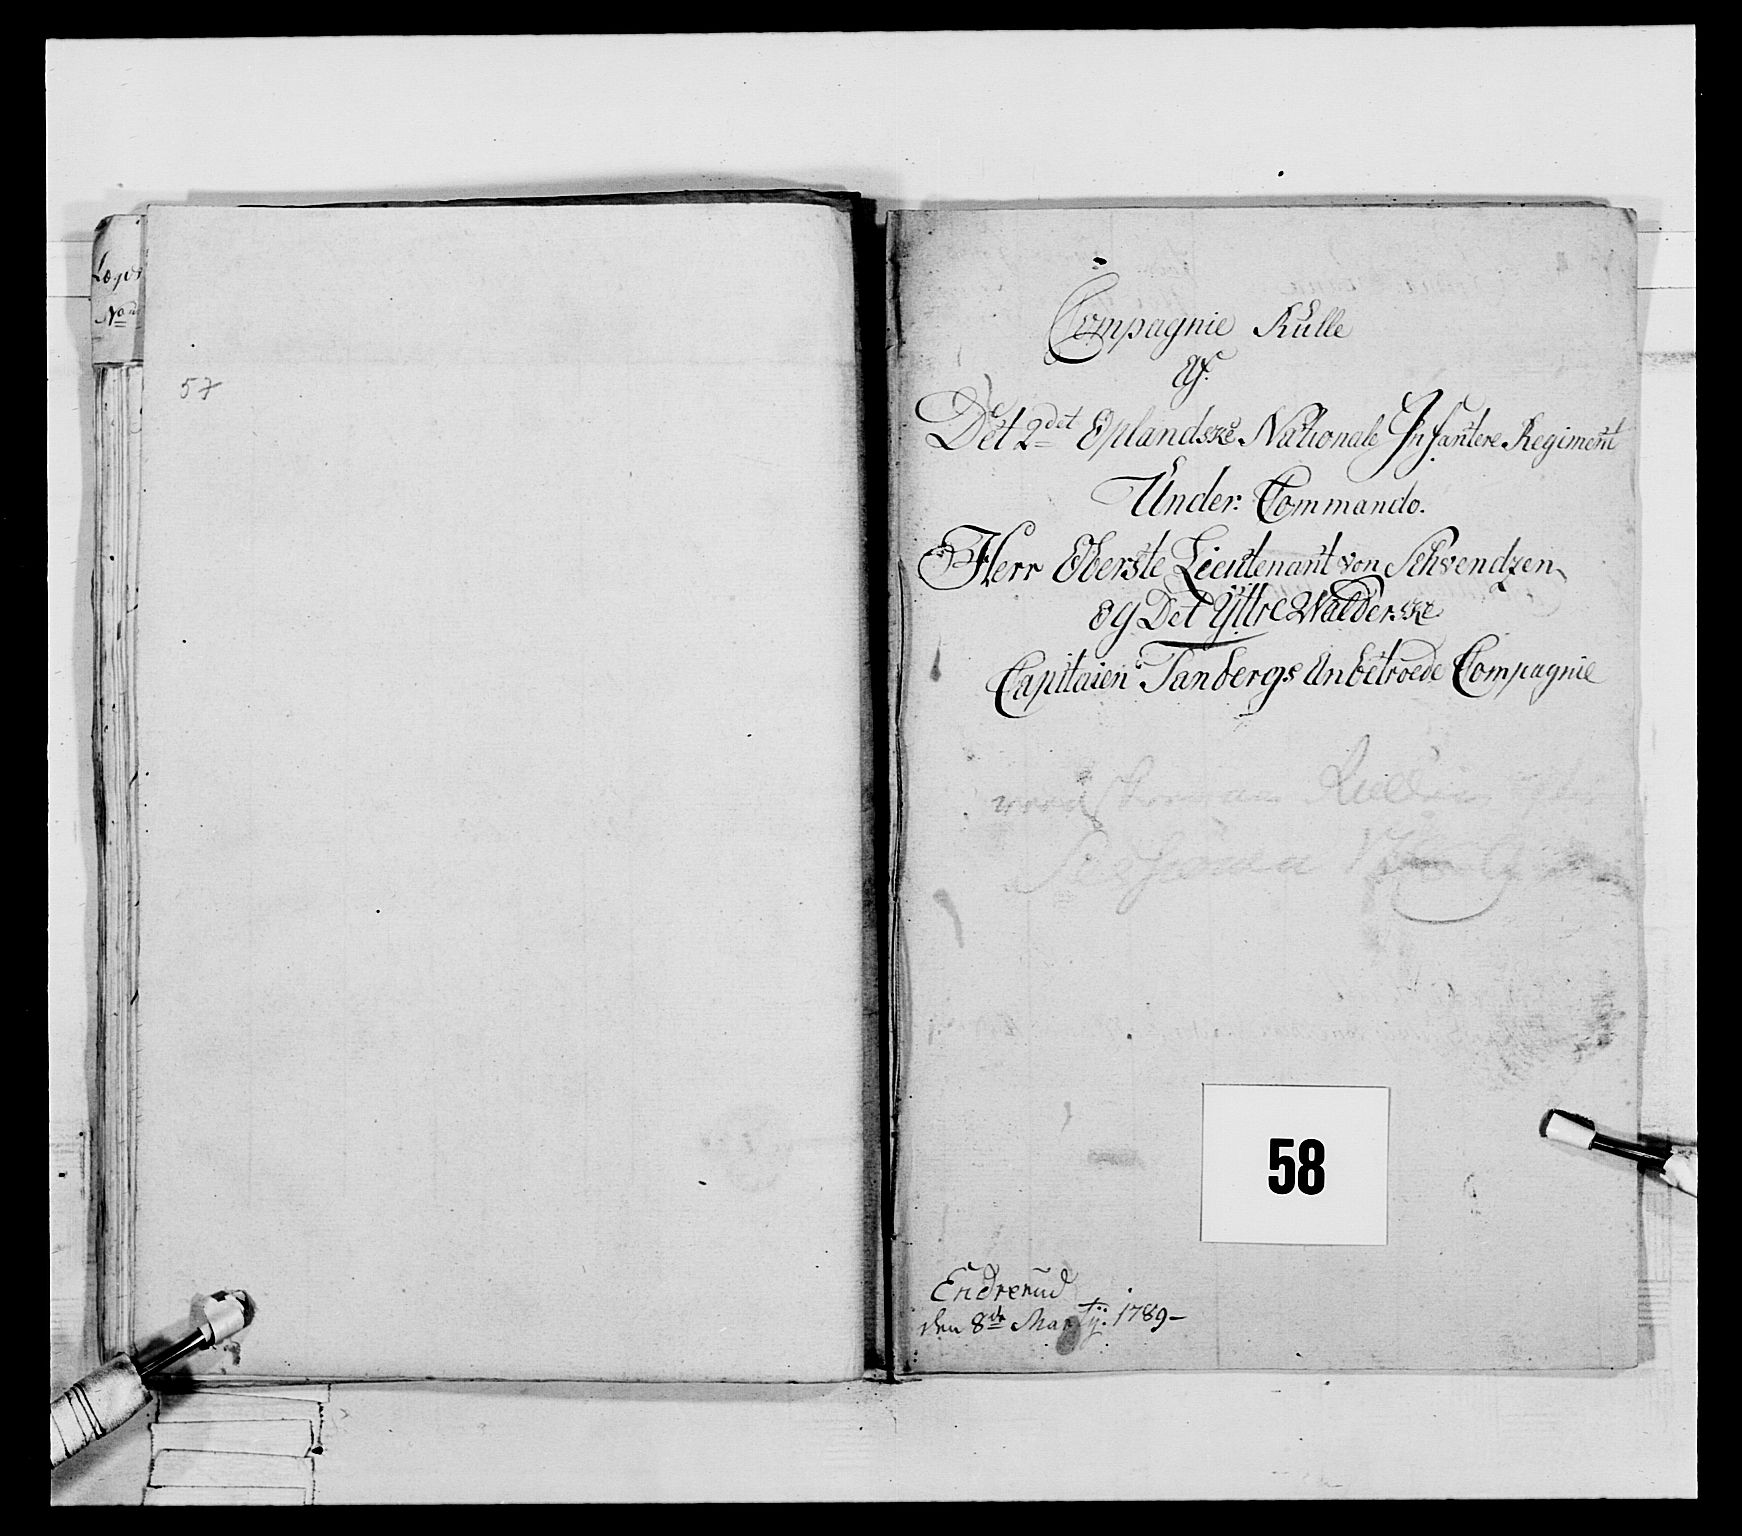 Lægds
No
57
Compagnie Rulle
Af
Det 2det Oplandske Nationale Infantere Regiment
Under Commando.
Herr Oberste Lieutenant von Schvendzen
og Det Yttre Walderske
Capitaien Tanbergs Anbetroede Compagnie
58
Endrerud
den 8de Martÿ: 1789-